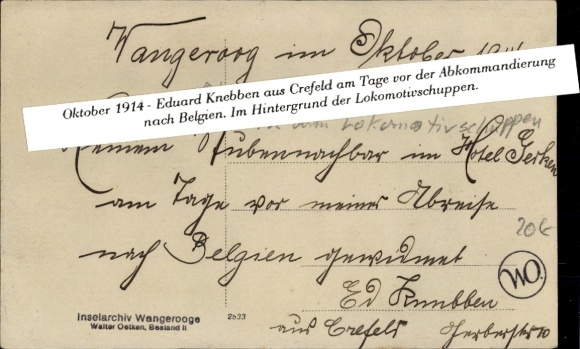 Wangeroog im Oktober
Oktober 1914 - Eduard Knebben aus Crefeld am Tage vor der Abkommandierung
nach Belgien. Im Hintergrund der Lokomotivschuppen.
Lokomotivschuppen
Meinem Stubennachbar im Hotel Gerken
am Tage vor meiner Abreise
206
nach Belgien gewidmet
WO.
Ed Knubben
Inselarchiv Wangerooge
Walter Oetken, Bestand II
2533
aus Crefeld